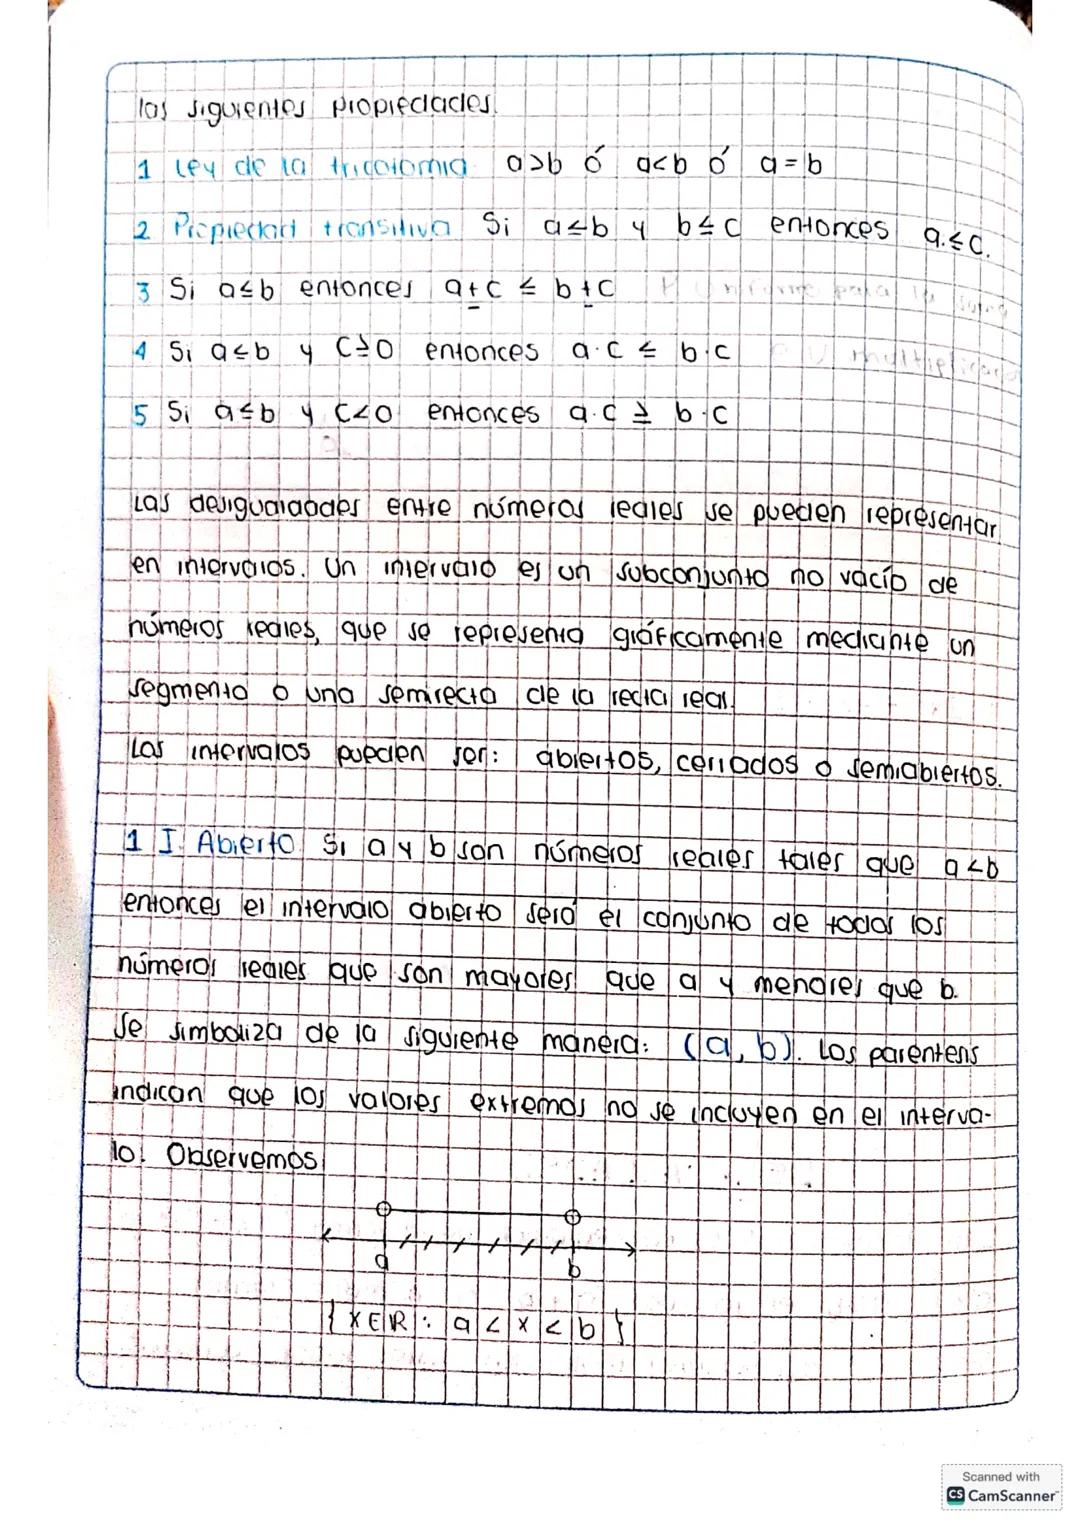 las siguientes propiedades.
1 Ley de la tricotomia. a>b ó a<b ó a=b
2 Propiedad transitiva Si a≤b y b≤c entonces a.≤c.
3 Si a≤b entonces a+c ≤ b+c Uniforme para la suma
4 Si a≤b y c≥0 entonces a·c ≤ b·c
5 Si a≤b y c<0 entonces a·c ≥ b·c
Las desigualdades entre números reales se pueden representar
en intervalos. Un intervalo es un subconjunto no vacío de
números reales, que se representa gráficamente mediante un
segmento o una semirecta de la recta real.
Los intervalos pueden ser: abiertos, cerrados o semiabiertos.
1 I. Abierto. Si a y b son números reales tales que a<b
entonces el intervalo abierto será el conjunto de todos los
números reales que son mayores que a y menores que b.
Se simboliza de la siguiente manera: (a, b). Los parentesis
indican que los valores extremos no se incluyen en el interva-
lo. Observemos
a b
{x∈ℝ: a < x < b}
Scanned with
CS CamScanner